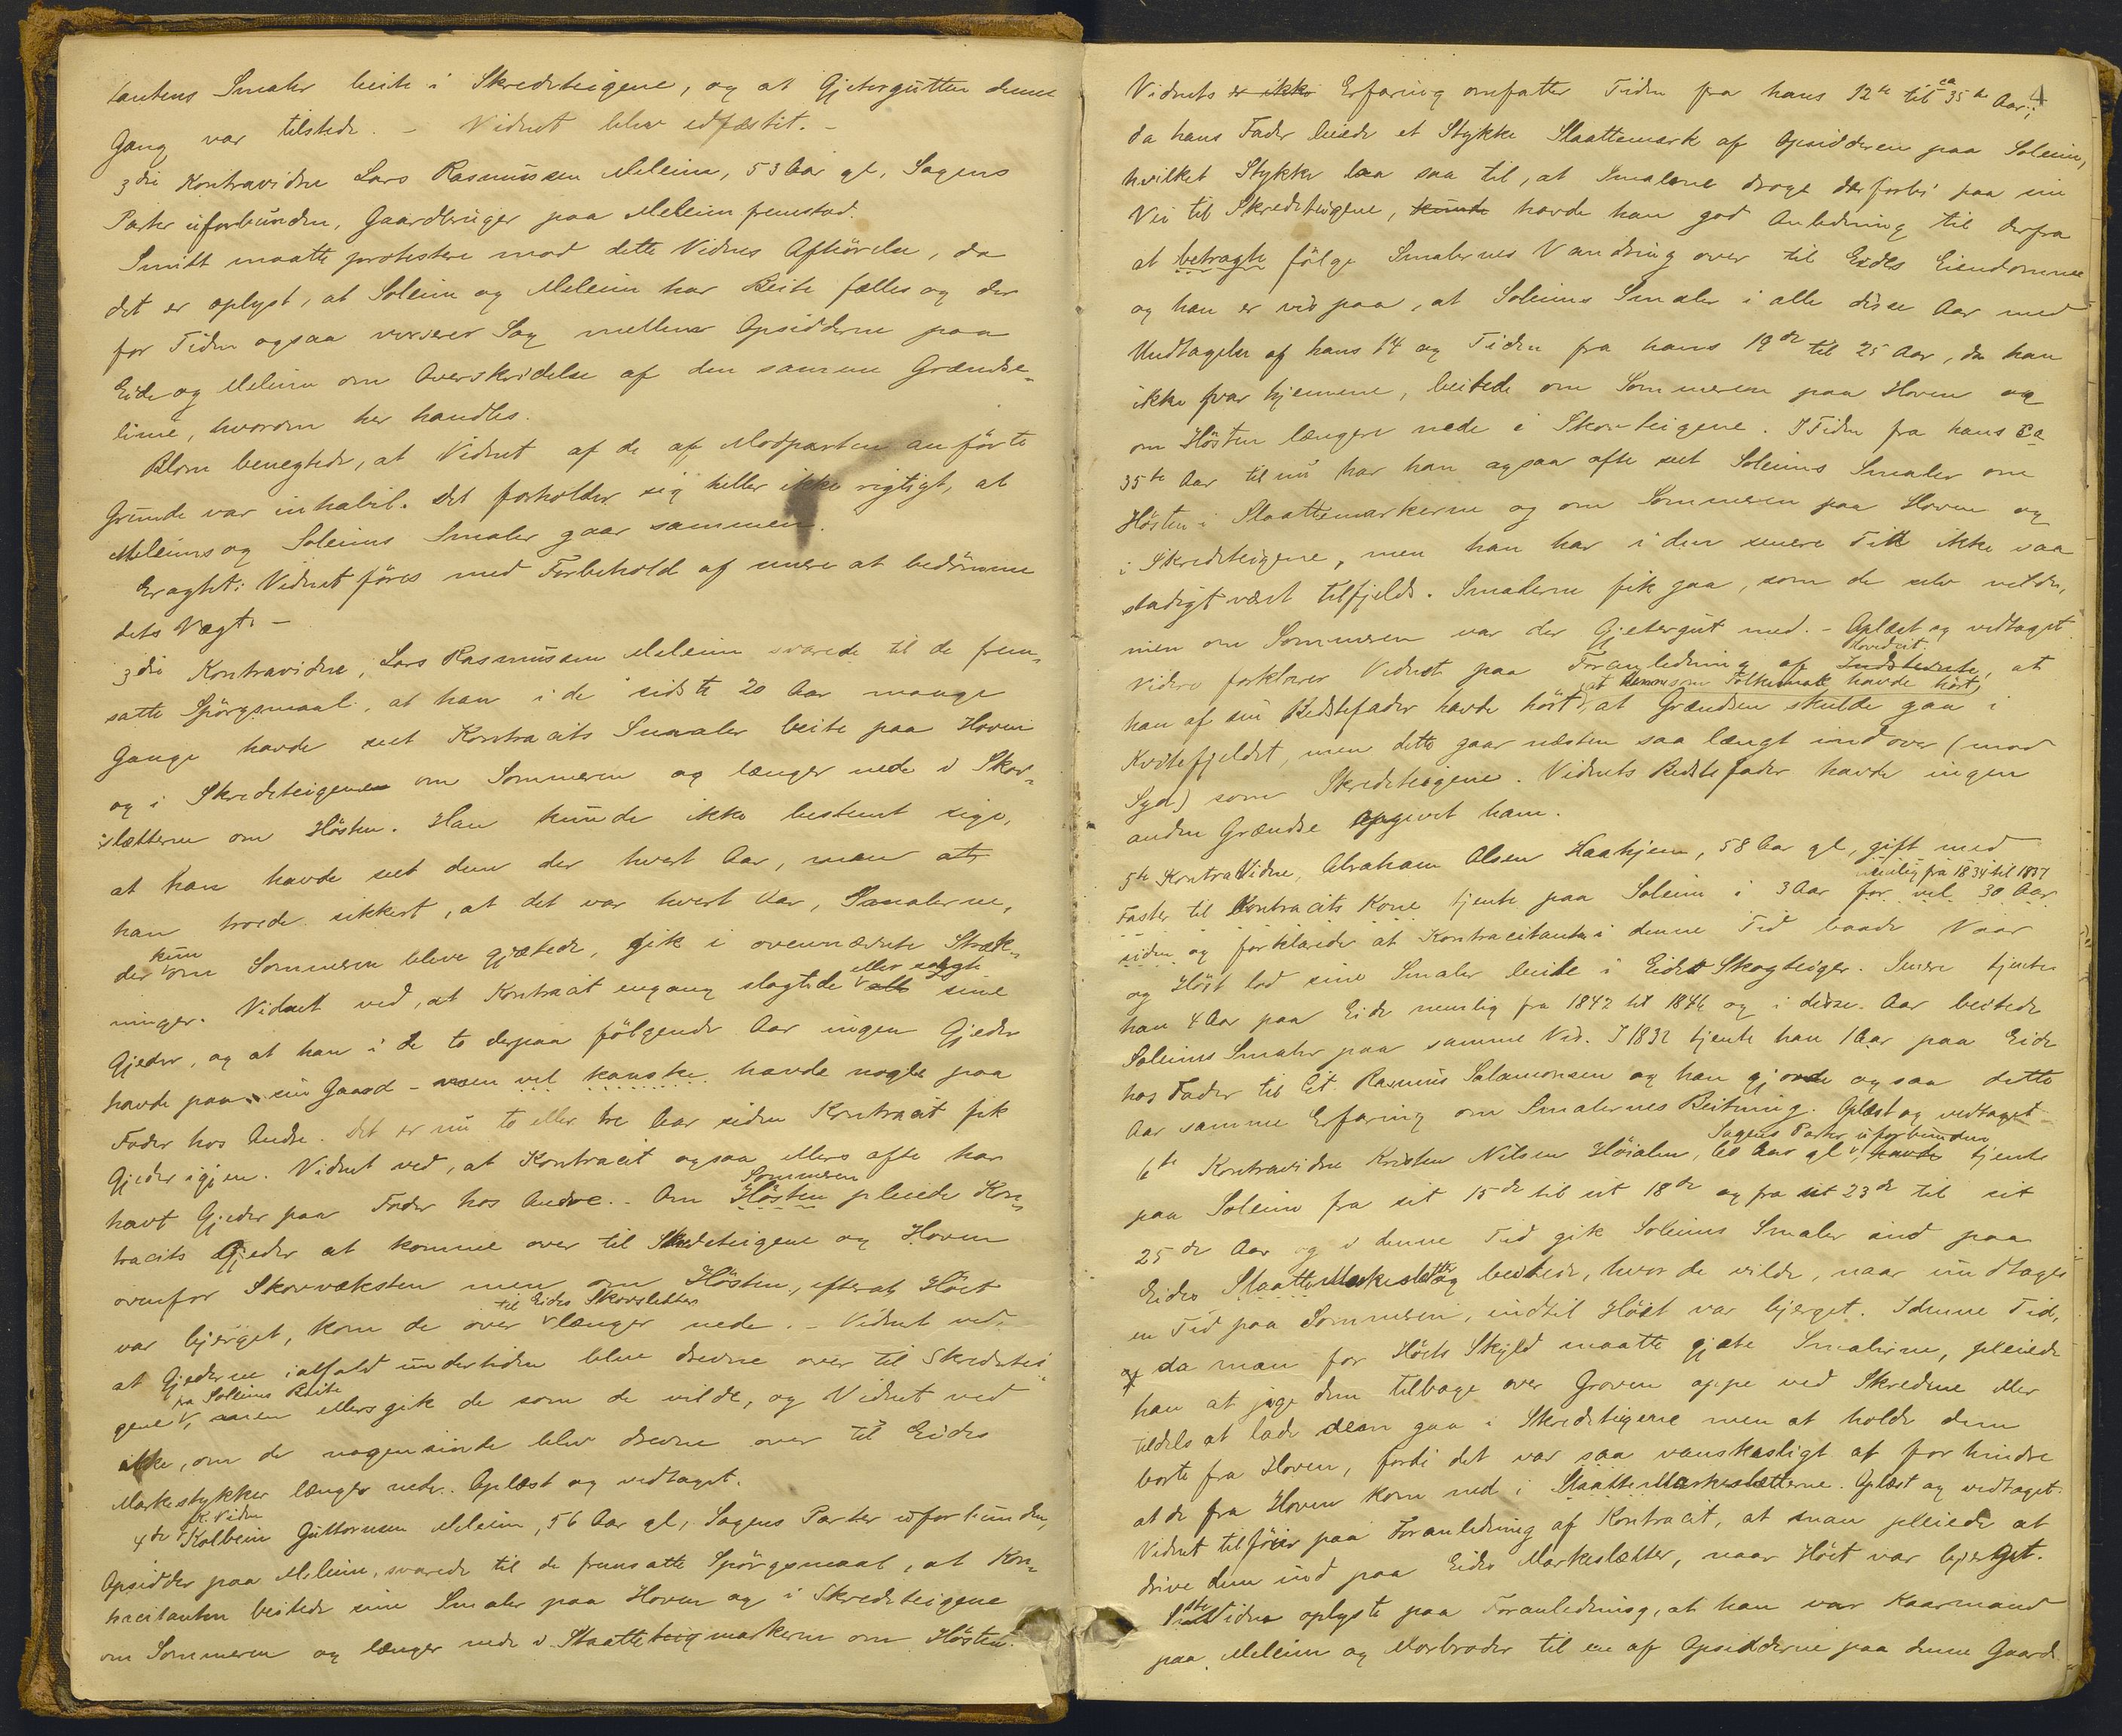 tantens Smaler beite i Skredeteigene, og at Gjetergutten denne
Gang var tilstede. – Vidnet blev edfæstet. –
3die Kontravidne Lars Rasmussen Meleim, 53 Aar gl, Sagens
Parter uforbunden, Gaardbruger paa Meleim fremstod.
Smitt maatte protestere mod dette Vidnes Afhörelse, da
det er oplyst, at Soleim og Meleim har Beite fælles og der
for Tiden ogsaa verserer Sag mellem Opsidderne paa
Eide og Meleim om Overskridelse af den samme Grændse-
linie, hvorom her handles.
Blom benegtede, at Vidnet af de af Modparten anförte
Grunde var inhabil. Det forholder sig heller ikke rigtigt, at
Meleims og Soleims Smaler gaar sammen.
Eragtet: Vidnet föres med Forbehold af senere at bedömme
dets Vægt. –
3die Kontravidne, Lars Rasmussen Meleim svarede til de frem-
satte Spörgsmaal, at han i de sidste 20 Aar mange
Gange havde seet Kontracits Smaler beite paa Hoven
og i Skredeteigene om Sommeren og længer nede i Skov-
slætterne om Hösten. Han kunde ikke bestemt sige,
at han havde seet dem der hvert Aar, men
han troede sikkert, at det var hvert Aar, Smalerne,
der kun om Sommeren bleve gjætede, gik i ovennævnte Stræk-
ninger. Vidnet ved, at Kontracit engang slagtede eller solgte alle sine
Gjeder, og at han i de to derpaa fölgende Aar ingen Gjeder
havde paa sin Gaard – men vel kanske havde nogle paa
Foder hos Andre. Det er nu to eller tre Aar siden Kontracit fik
Gjeder igjen. Vidnet ved, at Kontracit ogsaa ellers ofte har
havt Gjeder paa Foder hos Andre. – Om Sommeren Hösten pleiede Kon-
tracits Gjeder at komme over til Skredeteigene og Hoven
ovenfor Skovvæksten men om Hösten, efterat Höet
var bjerget, kom de over til Eides Skovsletter længer nede. – Vidnet ved,
at Gjederne ialfald undertiden bleve drevne over til Skredetei-
gene fra Soleims Beite, men ellers gik de som de vilde, og Vidnet ved
ikke, om de nogensinde blev drevne over til Eides
Markestykker længer nede. Oplæst og vedtaget.
4de K. Vidne Kolbein Guttormsen Meleim, 56 Aar gl, Sagens Parter uforbunden,
Opsidder paa Meleim, svarede til de fremsatte Spörgsmaal, at Kon-
tracitanten beitede sine Smaler paa Hoven og i Skredeteigene
om Sommeren og længer nede i Slaatteteigmarkerne om Hösten.
4
Vidnets er ikke Erfaring omfatter Tiden fra hans 12te til ca 35te Aar;
da hans Fader leiede et Stykke Slaattemark af Opsidderen paa Soleim,
hvilket Stykke laa saa til, at Smalene droge derforbi paa sin
Vei til Skredeteigene, kunde havde han god Anledning til derfra
at betragte fölge Smalernes Vandring over til Eides Eiendomme
og han er vis paa, at Soleims Smaler i alle disse Aar med
Undtagelse af hans 14 og Tiden fra hans 19de til 25 Aar, da han
ikke var hjemme, beitede om Sommeren paa Hoven og
om Hösten længere nede i Skovteigene. I Tiden fra hans ca
35te Aar til nu har han ogsaa ofte seet Soleims Smaler om
Hösten i Slaattemarkerne og om Sommeren paa Hoven og
i Skredeteigene, men han har i den senere Tid ikke saa
stadigt været tilfjelds. Smalerne fik gaa, som de selv vilde,
men om Sommeren var der Gjetergut med. – Oplæst og vedtaget
Videre forklarer Vidnet paa Foranledning af Hovedcit. Indstevnte, at
han af sin Bedstefader havde hört, at denne som Folkesnak havde hört, at Grændsen skulde gaa i
Kvitefjeldet, men dette gaar næsten saa langt indover (mod
Syd) som Skredeteigene. Vidnets Bedstefader havde ingen
anden Grændse opgivet ham.
5te Kontravidne, Abraham Olsen Haahjem, 58 Aar gl, gift med
Faster til Kontracits Kone tjente paa Soleim i 3 Aar nemlig fra 1834 til 1837 for vel 30 Aar
siden og forklarede at Kontracitanten i denne Tid baade Vaar
og Höst lod sine Smaler beite i Eides Skogteiger. Senere tjente
han 4 Aar paa Eide nemlig fra 1842 til 1846 og i disse Aar beitede
Soleims Smaler paa samme Vis. I 1832 tjente han 1 Aar paa Eide
hos Fader til Cit. Rasmus Salamonsen og han gjorde ogsaa dette
Aar samme Erfaring om Smalernes Beitning. Oplæst og vedtaget
6te Kontravidne Kristen Nilsen Höialm, 60 Aar gl, Sagens Parter uforbunden, havde tjente
paa Soleim fra sit 15de til sit 18de og fra sit 23de til sit
25de Aar og i denne Tid gik Soleims Smaler ind paa
Eides Slaattemarksletter og beitede, hvor de vilde, naar undtages
en Tid paa Sommeren, indtil Höet var bjerget. I denne Tid,
og da man for Höets Skyld maatte gjæte Smalerne, pleiede
han at jage dem tilbage over Groven oppe ved Skredene eller
tildels at lade dem gaa i Skredeteigene men at holde dem
borte fra Hoven, fordi det var saa vanskeligt at forhindre
at de fra Hoven kom ned i Slaattemarkesletterne. Oplæst og vedtaget.
Vidnet tilföier paa Foranledning af Kontracit, at man pleiede at
drive dem ind paa Eides Markesletter, naar Höet var bjerget.
Vidne oplyste paa Foranledning, at han var Kaarmand
paa Meleim og Morbroder til en af Opsidderne paa denne Gaard.